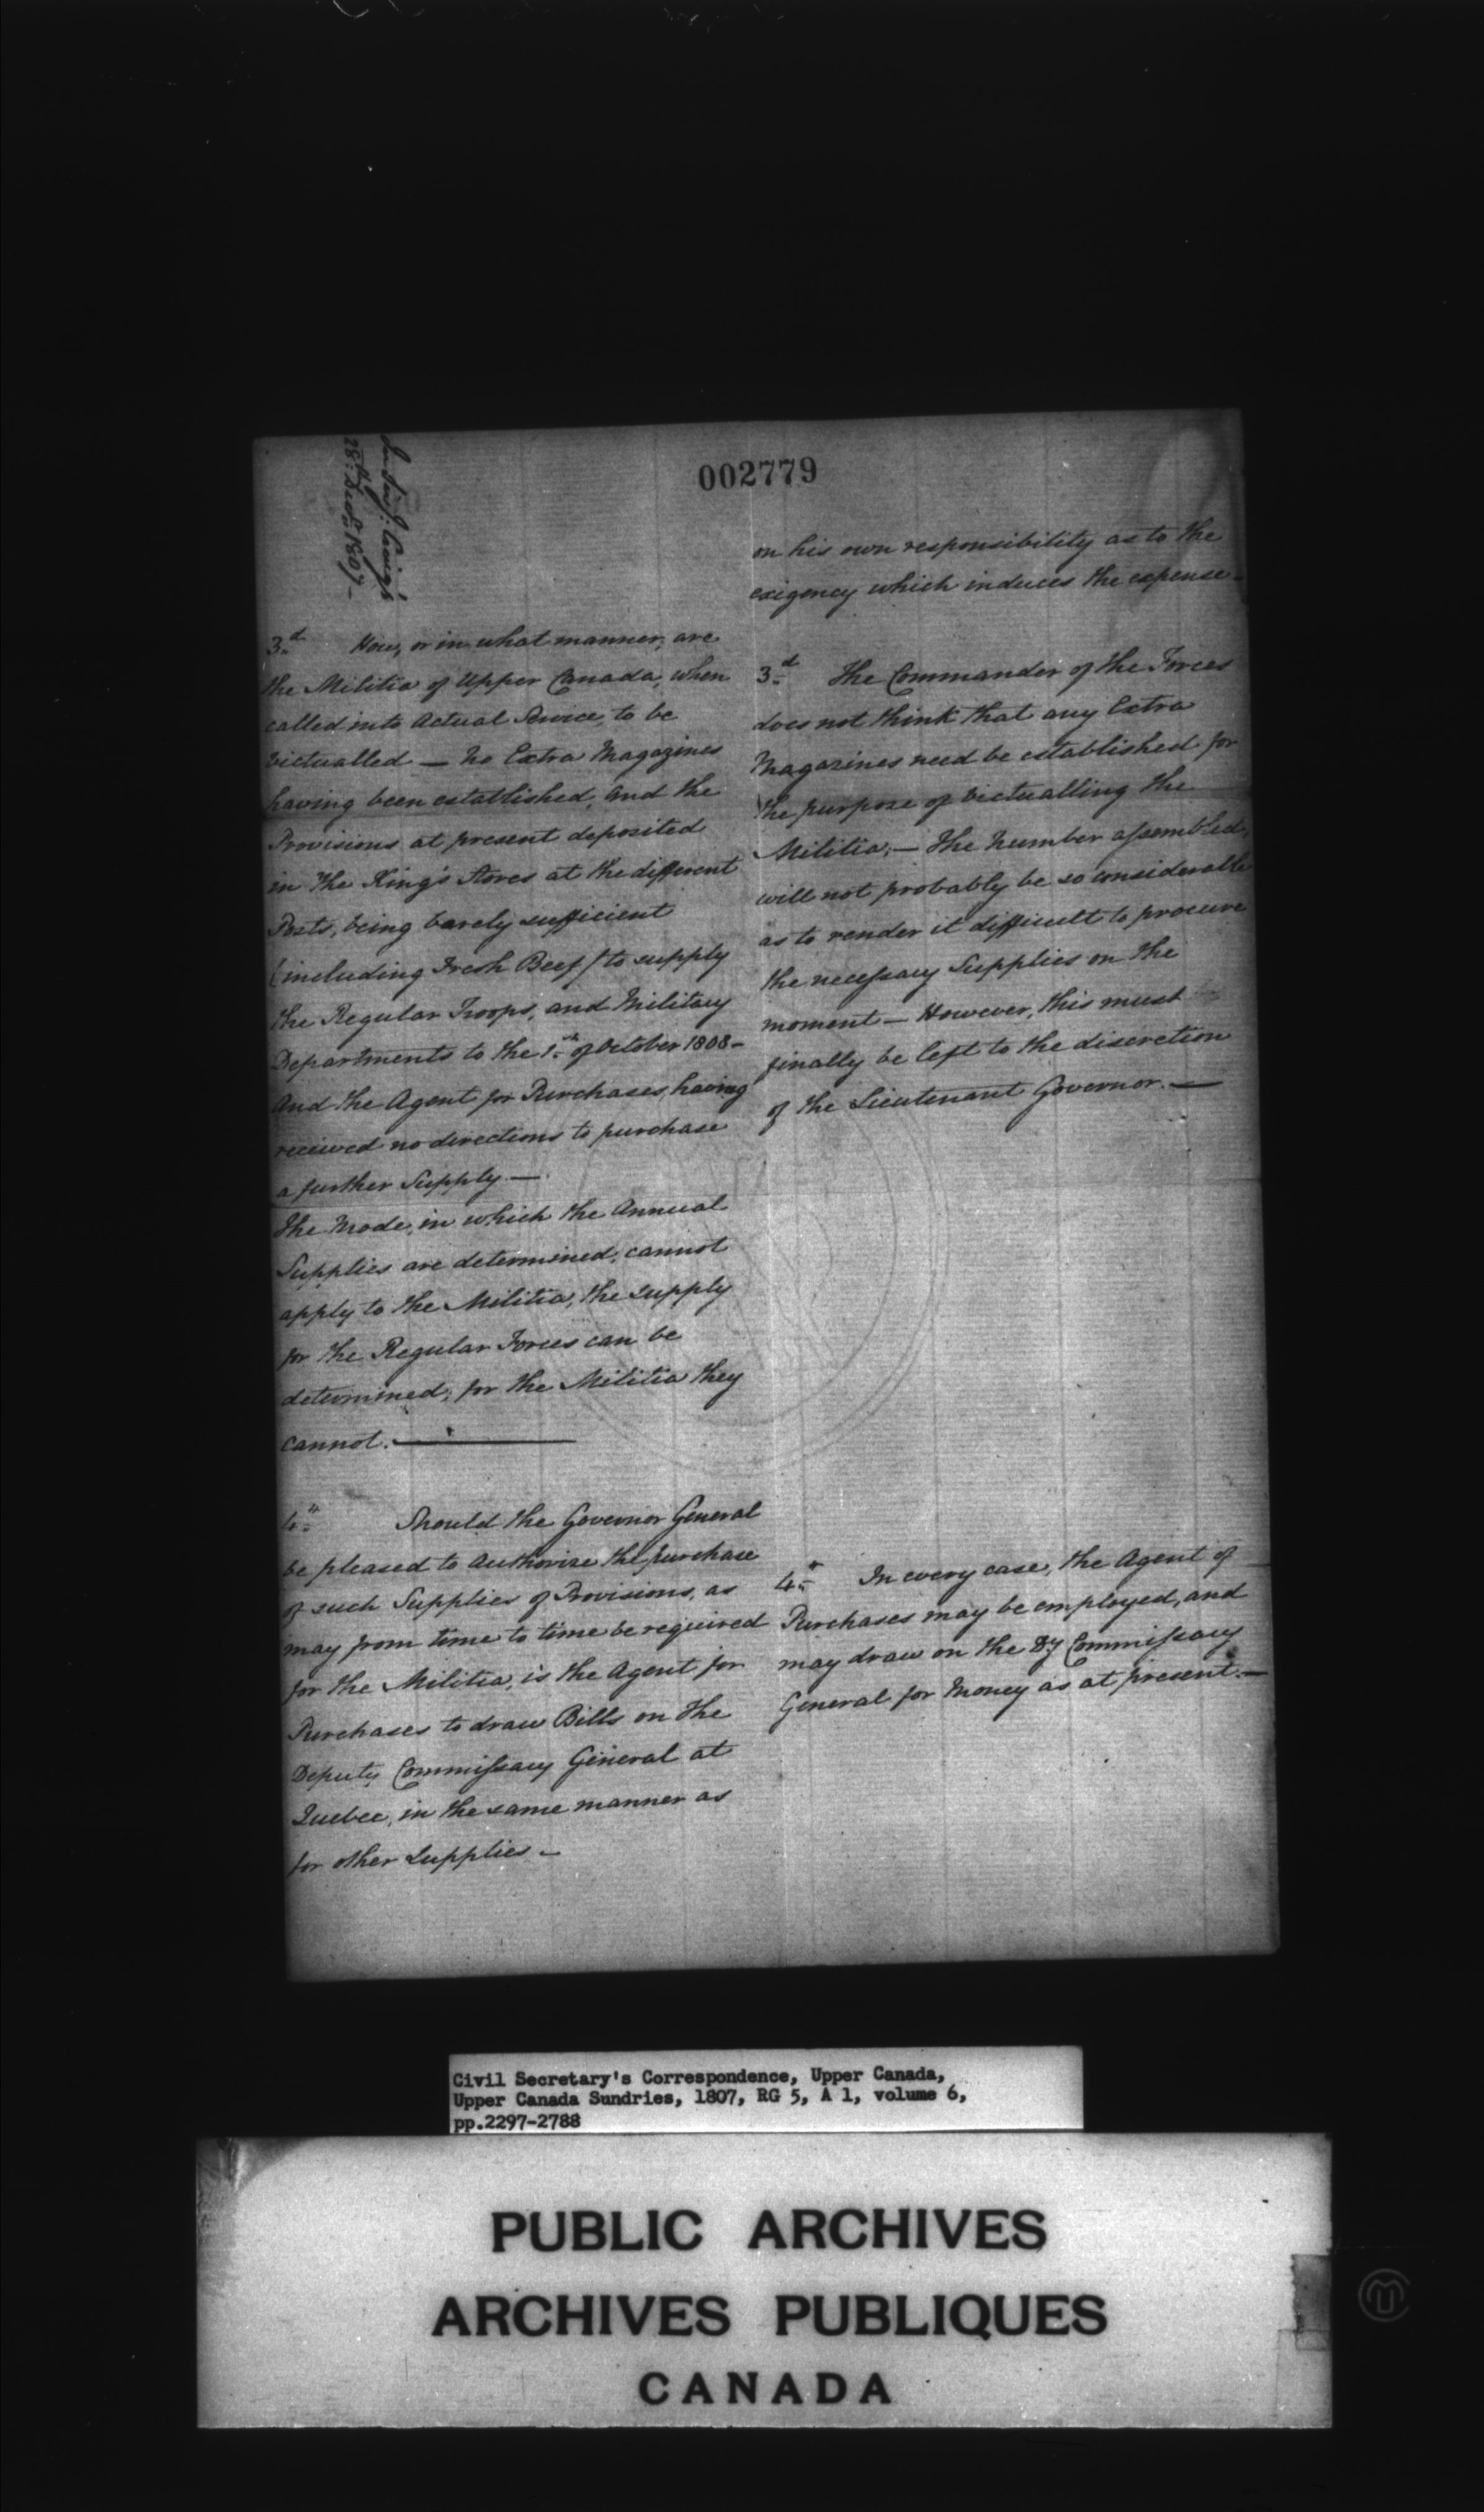 002779
In Sir J: Craig's
28th: Decr: 1807 –
3.d How, or in what manner, are
the Militia of Upper Canada, when
called into Actual Service, to be
Victualled — No Extra Magazines
having been established, and the
Provisions at present deposited
in the King's Stores at the different
Posts, being barely sufficient
(including Fresh Beef) to supply
the Regular Troops, and Military
Departments to the 1.st of October 1808 –
And the Agent for Purchases, having
received no directions to purchase
a further Supply. —
The Mode, in which the Annual
Supplies are determined, cannot
apply to the Militia, the supply
for the Regular Forces can be
determined; for the Militia they
cannot. —
4.th Should the Governor General
be pleased to Authorize the purchase
of such Supplies of Provisions, as
may from time to time be required
for the Militia, is the Agent for
Purchases to draw Bills on the
Deputy Commissary General at
Quebec, in the same manner as
for other Supplies –
on his own responsibility as to the
exigency which induces the expense –
3.d The Commander of the Forces
does not think that any Extra
Magazines need be established for
the purpose of victualling the
Militia; — The Number assembled,
will not probably be so considerable
as to render it difficult to procure
the necessary Supplies on the
moment — However, this must
finally be left to the discretion
of the Lieutenant Governor. —
4.th In every case, the Agent of
Purchases may be employed, and
may draw on the Dy Commissary
General for Money as at present. —
Civil Secretary's Correspondence, Upper Canada,
Upper Canada Sundries, 1807, RG 5, A 1, volume 6,
pp.2297-2788
PUBLIC ARCHIVES
ARCHIVES PUBLIQUES
CANADA